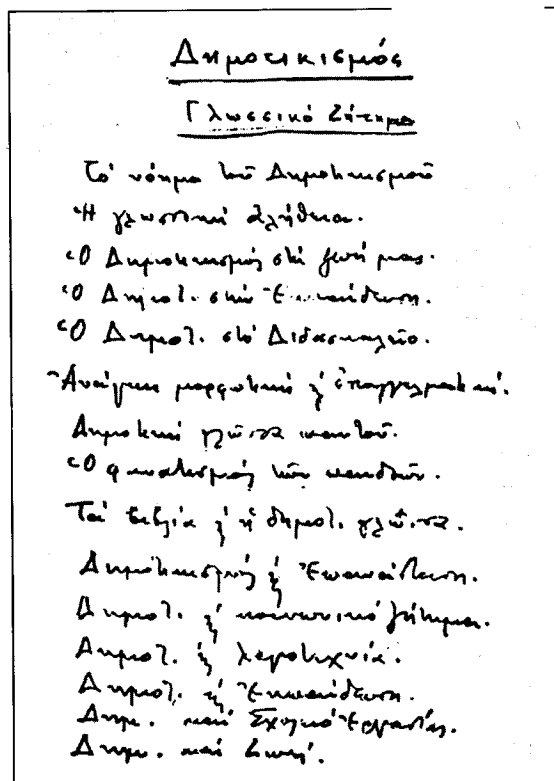 Δημοτικισμός
Γλωσσικό Ζήτημα
Τό νόημα τοῦ Δημοτικισμοῦ
Ἡ γλωσσική ἀλήθεια.
Ὁ Δημοτικισμός στή ζωή μας.
Ὁ Δημοτ. στήν Ἐκπαίδευση.
Ὁ Δημοτ. στό Διδασκαλεῖο.
Ἀνάγκη μορφωτική ἤ ἐπαγγελματική.
Δημοτική γλῶσσα παντοῦ.
Ὁ φωτισμός τῶν παιδιῶν.
Τά βιβλία ἤ ἡ δημοτ. γλῶσσα.
Δημοτικισμός ἤ Ἐπανάσταση.
Δημοτ. ἤ κοινωνικό ζήτημα.
Δημοτ. ἤ λογοτεχνία.
Δημοτ. ἤ Ἐκπαίδευση.
Δημ. καί Σχολικό Ἐργασία.
Δημ. καί ζωή.